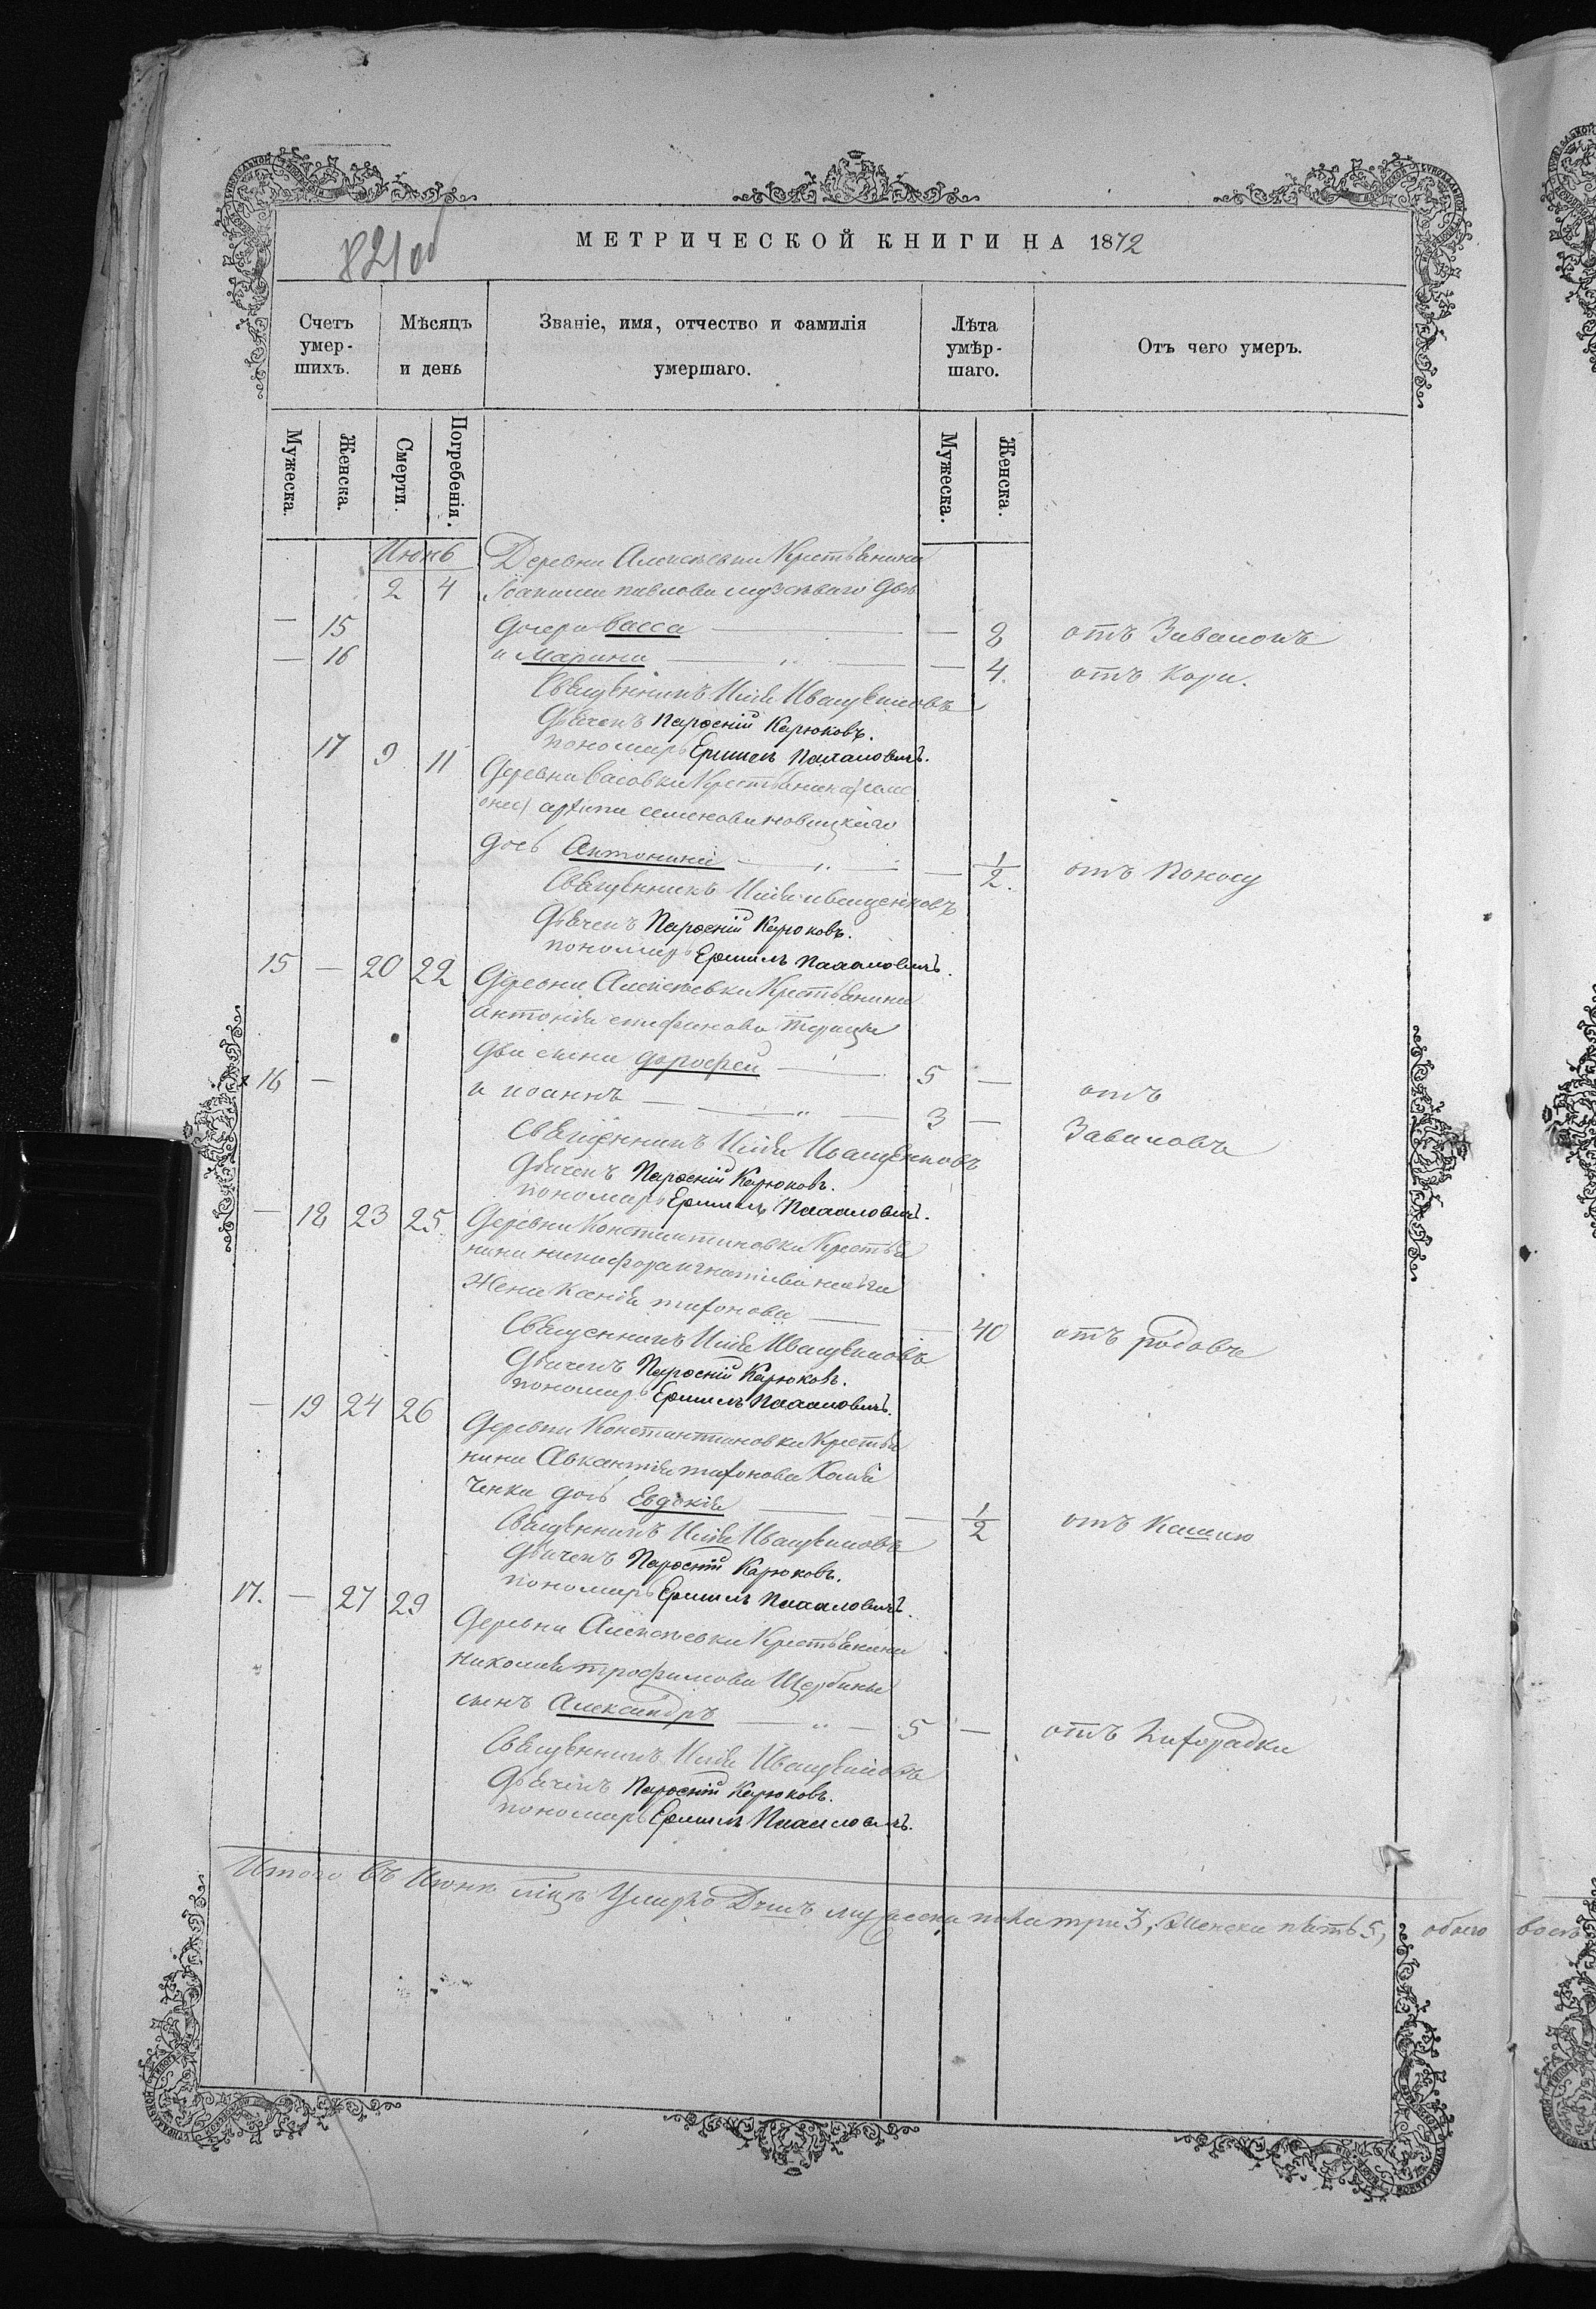 МЕТРИЧЕСКОЙ КНИГИ НА 1872
Счетъ умер-шихъ.
Мѣсяцъ и день
Званіе, имя, отчество и фамилія умершаго.
Лѣта умѣр-шаго.
Отъ чего умеръ.
Мужеска. Женска. Смерти. Погребенія. Мужеска. Женска.
Июнь Деревни Алексѣевки Крестьянина
2 4 Іоанима павлова двѣ
— 15 дочери васса — — 8 отъ Завалокъ
— 16 и Марина — — 4. отъ Кори.
Священникъ Илія Иващенковъ
Дьячекъ Парѳеній Карюковъ.
пономарь Ермилъ
17 9 11 Деревни Крестьянина
семенова новицкаго
дочь Антонина — — 1/2. отъ Поносу
Священникъ Илія иващенковъ
Дьячекъ Парѳеній Карюковъ.
пономарь Ермилъ
15 — 20 22 Деревни Алексѣевки Крестьянина
антонія епифанова
два сына дороѳей — 5 — отъ
16 — и иоаннъ — 3 — Завалокъ
Священникъ Илія Иващенковъ
Дьячекъ Парѳеній Карюковъ.
пономарь Ермилъ
— 18 23 25 Деревни Константиновки Крестья
нина никифора игнатіева
Жена Ксенія тихонова — — 40 отъ родовъ
Священникъ Илія Иващенковъ
Дьячекъ Парѳеній Карюковъ.
пономарь Ермилъ
— 19 24 26 Деревни Константиновки Крестья
нина Авксентія тихонова Калі
ченка дочь Евдокія — — 1/2 отъ Кашлю
Священникъ Илія Иващенковъ
Дьячекъ Парѳеній Карюковъ.
пономарь Ермилъ
17. — 27 29 Деревни Алексѣевки Крестьянина
николая трофимова Щербины
сынъ Александръ — 5 — отъ Лихорадки
Священникъ Илія Иващенковъ
Дьячекъ Парѳеній Карюковъ.
пономарь Ермилъ
Итого въ Июнѣ м͠цѣ Умерло Душъ мужеска пола три 3, Женска пять 5, обоего восем